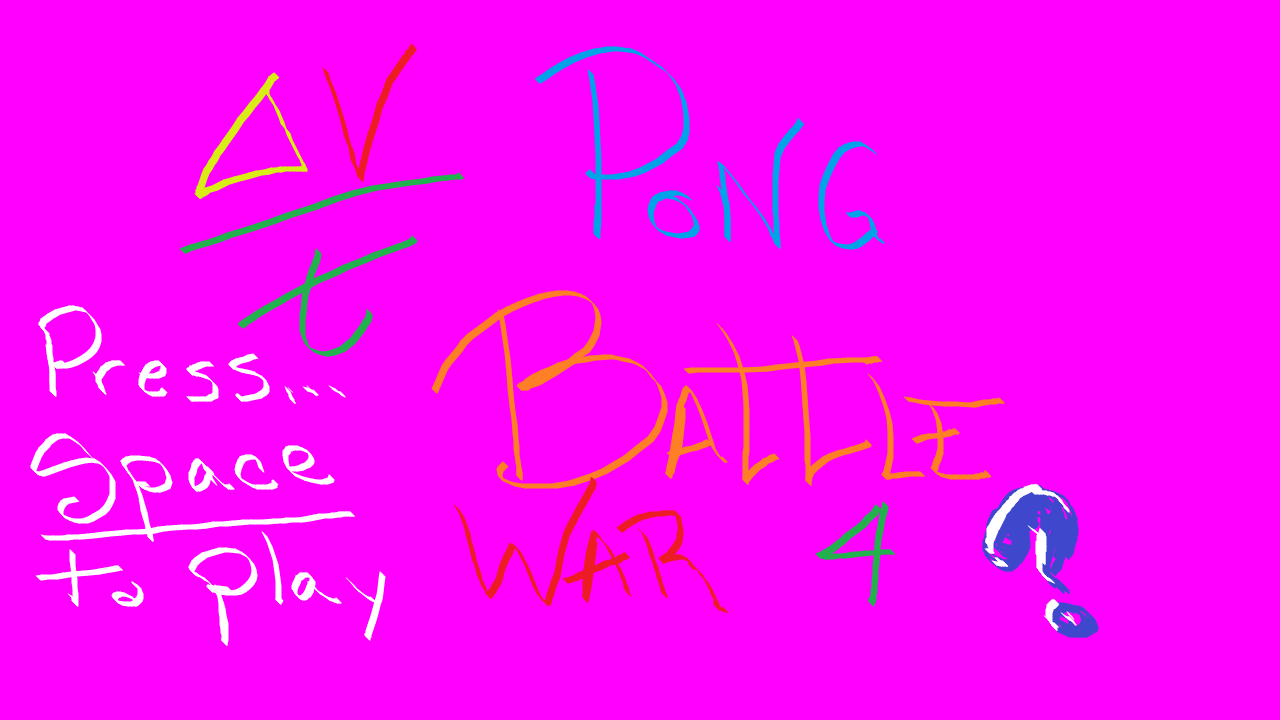 ΔV
t
PONG
BATTLE
WAR 4 ?
Press...
Space
to play